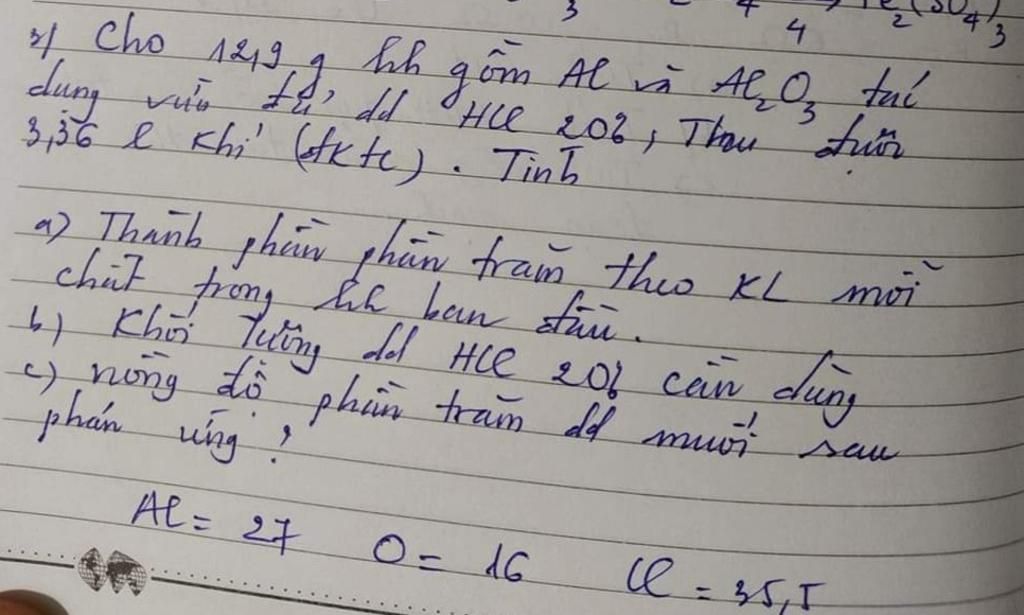 3 4 → Fe2(SO4)3
4
2/ Cho 12,9 g hh gồm Al và Al2O3 tác
dụng vừa đủ dd HCl 20%, Thu được
3,36 l khí (đktc). Tính
a) Thành phần phần trăm theo KL mỗi
chất trong hh ban đầu.
b) Khối lượng dd HCl 20% cần dùng
c) nồng độ phần trăm dd muối sau
phản ứng?
Al = 27 O = 16 Cl = 35,5